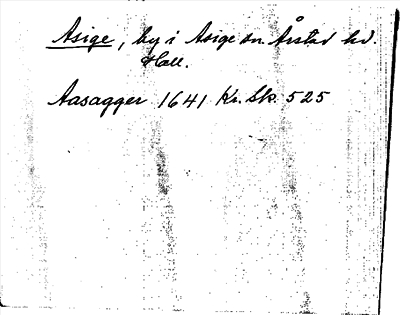 Asige, by i Asige sn. Årstad hd.
Hall.
Aasagger 1641 Kr. Sk. 525